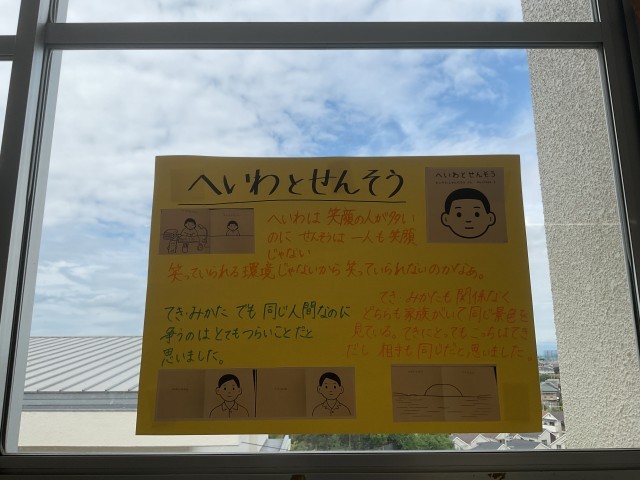 へいわとせんそう
へいわとせんそう
へいわは 笑顔の人が多い
のに せんそうは 一人も笑顔
じゃない
笑っていられる環境じゃないから笑っていられないのかなあ。
てき・みかた でも 同じ人間なのに
争うのは とてもつらいことだと
思いました。
てき・みかたも関係なく
どちらも家族がいて同じ景色を
見ている。てきにとってもこっちはてき
だし 相手も同じだと思いました。